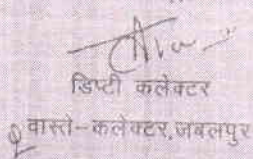 डिप्टी कलेक्टर
वास्ते-कलेक्टर, जबलपुर